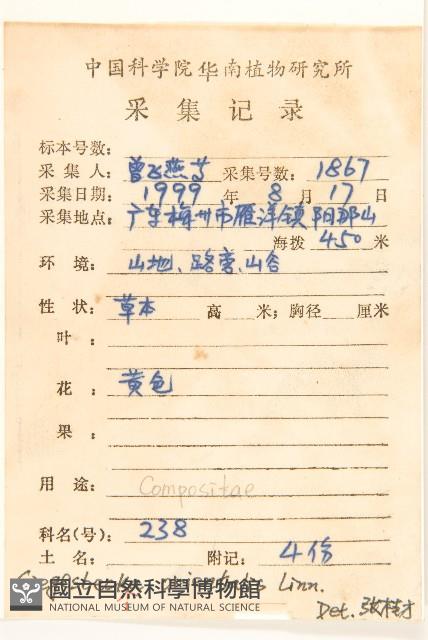 中国科学院华南植物研究所
采集记录
标本号数:
采集人: 曾飞燕等 采集号数: 1867
采集日期: 1999 年 8 月 17 日
采集地点: 广东梅州市雁洋镇阴那山
海拨 450 米
环境: 山地、路旁、山谷
性状: 草本 高 米; 胸径 厘米
叶:
花: 黄色
果:
用途: Compositae
科名(号): 238
土名: 附记: 4份
Linn.
國立自然科學博物館
NATIONAL MUSEUM OF NATURAL SCIENCE
Det. 张桂才